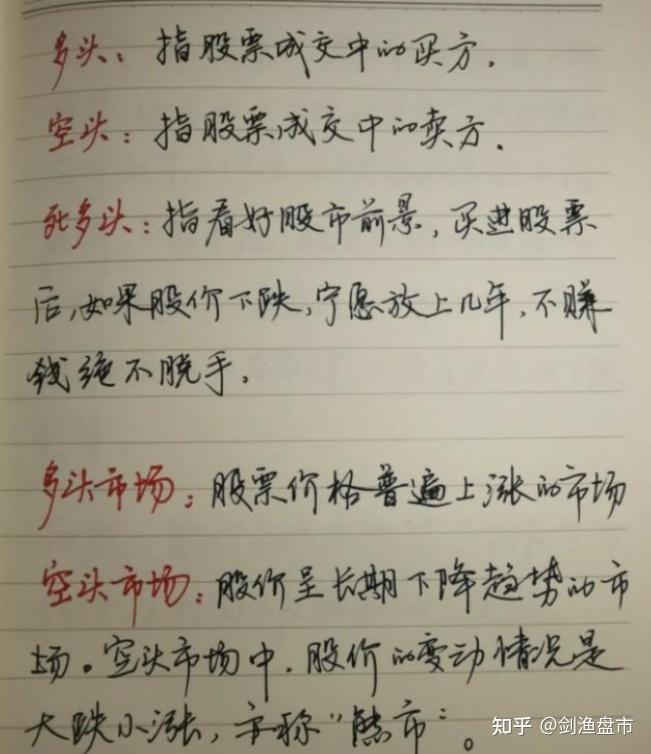 多头：指股票成交中的买方.
空头：指股票成交中的卖方.
死多头：指看好股市前景,买进股票
后,如果股价下跌,宁愿放上几年,不赚
钱绝不脱手。
多头市场：股票价格普遍上涨的市场
空头市场：股价呈长期下降趋势的市
场。空头市场中.股价的变动情况是
大跌小涨,亦称“熊市”。
知乎 @剑渔盘市